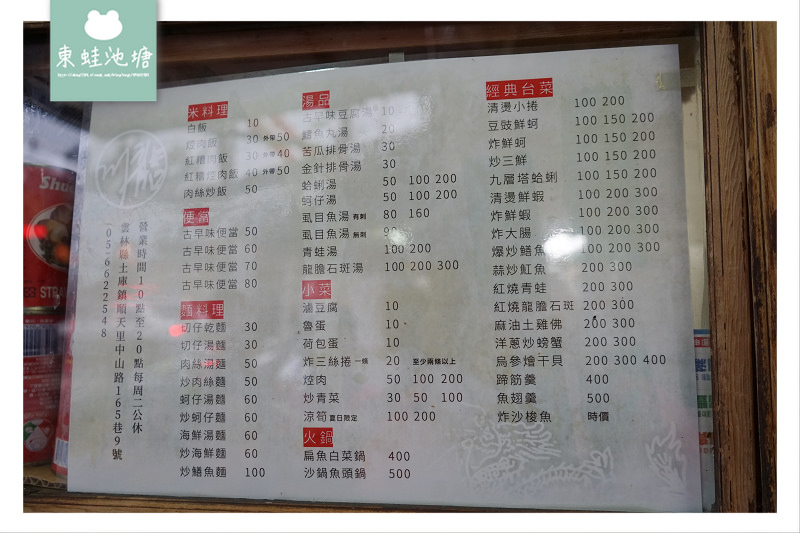 東蛙池塘
米料理
白飯 10
焢肉飯 30 外帶50
紅糟肉飯 30 外帶40
紅糟焢肉飯 40 外帶50
肉絲炒飯 50
便當
古早味便當 50
古早味便當 60
古早味便當 70
古早味便當 80
麵料理
切仔乾麵 30
切仔湯麵 30
肉絲湯麵 50
炒肉絲麵 50
蚵仔湯麵 60
炒蚵仔麵 60
海鮮湯麵 60
炒海鮮麵 60
炒鱔魚麵 100
湯品
古早味豆腐湯 10
鱔魚丸湯 20
苦瓜排骨湯 30
金針排骨湯 30
蛤蜊湯 50 100 200
蚵仔湯 50 100 200
虱目魚湯 有刺 80 160
虱目魚湯 無刺
青蛙湯 100 200
龍膽石斑湯 100 200 300
小菜
滷豆腐 10
魯蛋 10
荷包蛋 10
炸三絲捲 一條 20 至少兩條以上
焢肉 50 100 200
炒青菜 30 50 100
涼筍 夏日限定 100 200
火鍋
扁魚白菜鍋 400
沙鍋魚頭鍋 500
經典台菜
清燙小捲 100 200
豆豉鮮蚵 100 150 200
炸鮮蚵 100 150 200
炒三鮮 100 150 200
九層塔蛤蜊 100 150 200
清燙鮮蝦 100 200 300
炸鮮蝦 100 200 300
炸大腸 100 200 300
爆炒鱔魚 100 200 300
蒜炒魟魚 200 300
紅燒青蛙 200 300
紅燒龍膽石斑 200 300
麻油土雞佛 200 300
洋蔥炒螃蟹 200 300
烏參燴干貝 200 300 400
蹄筋羹 400
魚翅羹 500
炸沙梭魚 時價
營業時間10點至20點每周二公休
雲林縣土庫鎮順天里中山路165巷9號
05-6622548